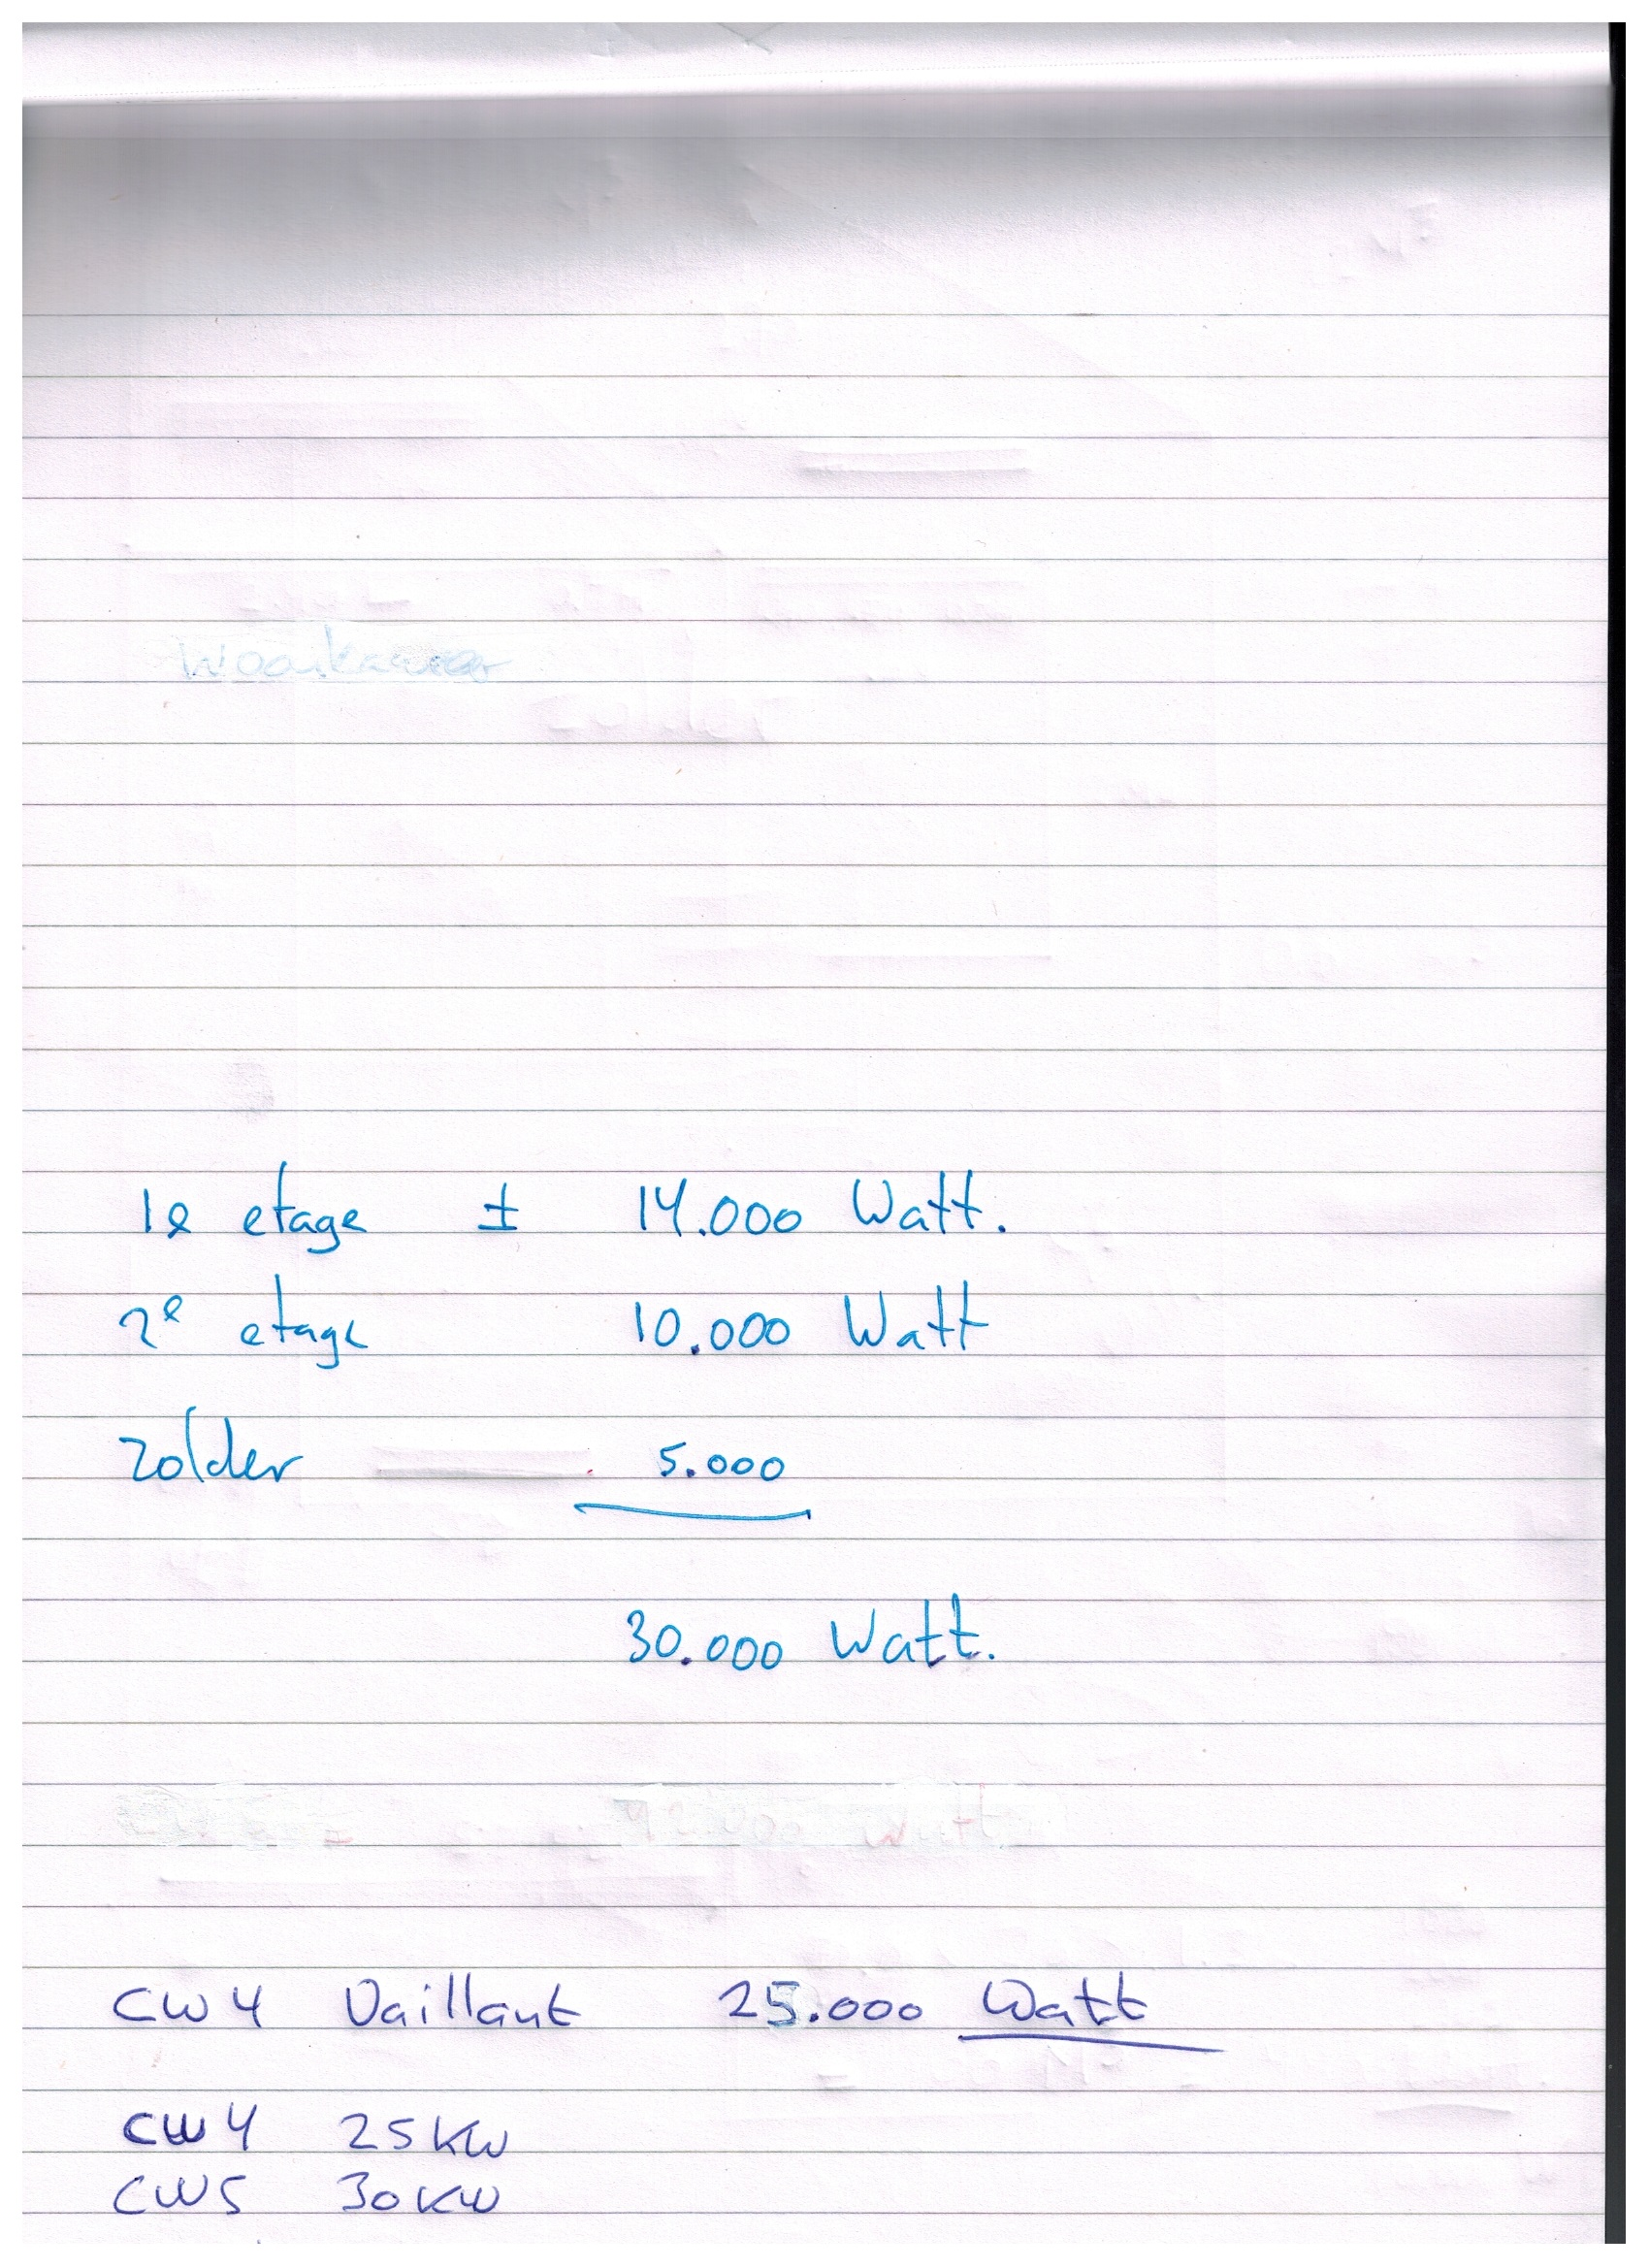 1e etage ± 14.000 Watt.
2e etage 10.000 Watt
Zolder 5.000
30.000 Watt.
CW4 Vaillant 25.000 Watt
CW4 25KW
CW5 30KW